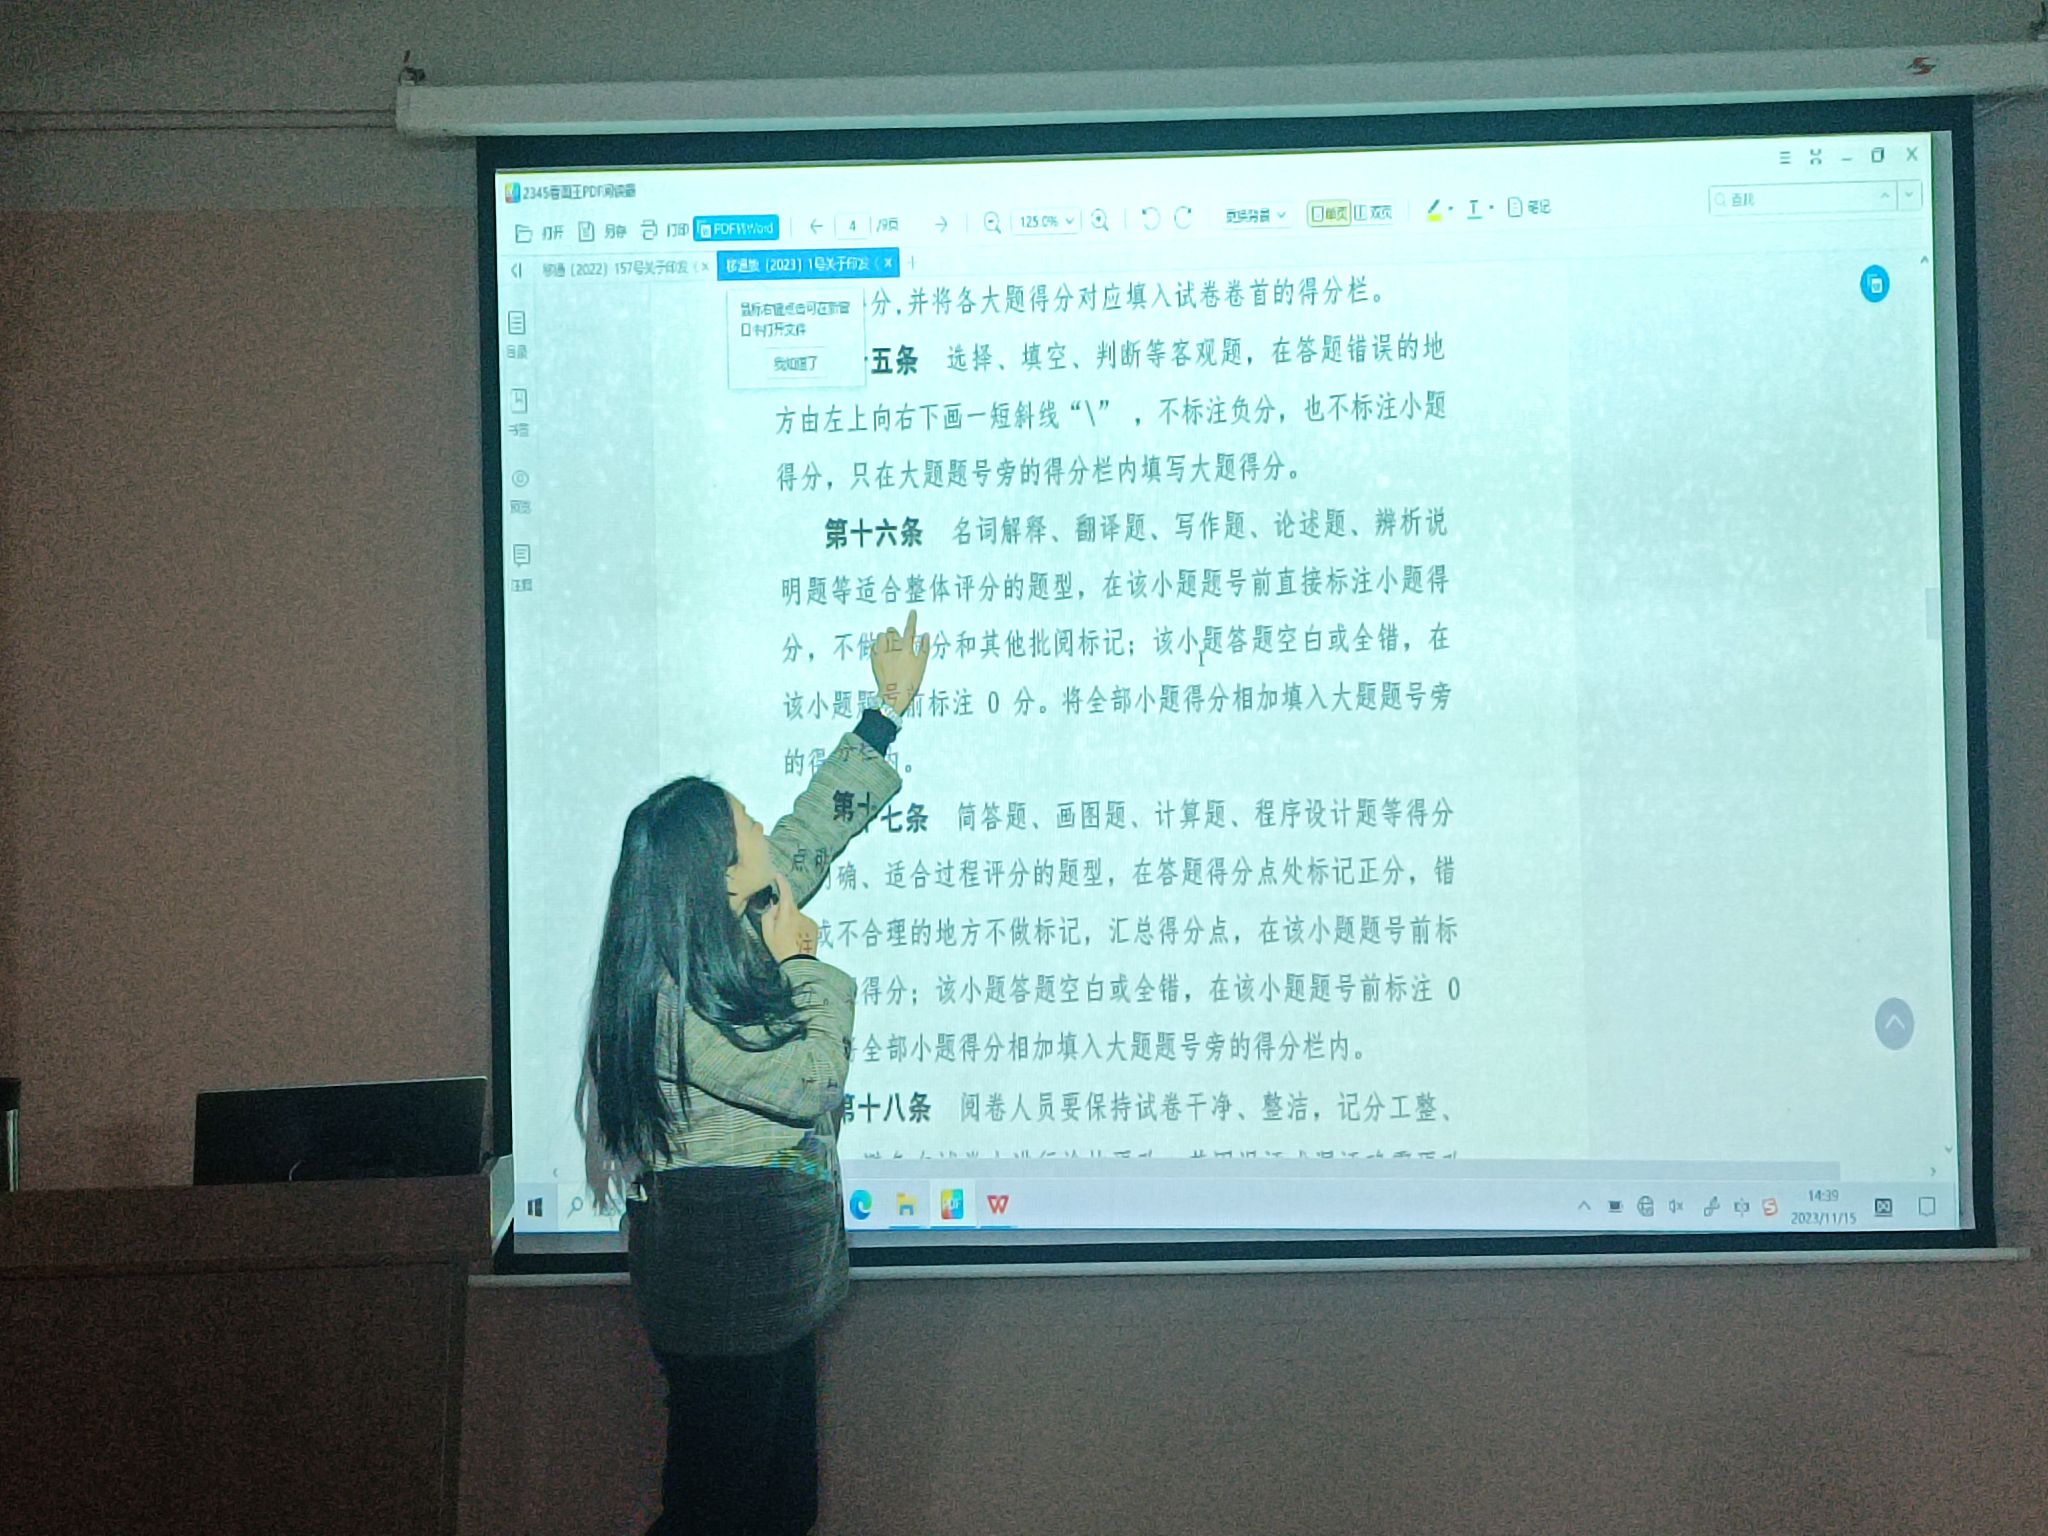 2345看图王PDF阅读器
打开 另存 打印 PDF转Word 4 /9页 125.0% 更换背景 单页 双页 T 笔记 查找
移通〔2022〕157号关于印发〈 × 移通教〔2023〕1号关于印发〈 × +
目录
书签
预览
注释
鼠标右键点击可在新窗
口中打开文件
我知道了
分,并将各大题得分对应填入试卷卷首的得分栏。
五条 选择、填空、判断等客观题，在答题错误的地
方由左上向右下画一短斜线“\”，不标注负分，也不标注小题
得分，只在大题题号旁的得分栏内填写大题得分。
第十六条 名词解释、翻译题、写作题、论述题、辨析说
明题等适合整体评分的题型，在该小题题号前直接标注小题得
分，不做正负分和其他批阅标记；该小题答题空白或全错，在
该小题题号前标注 0 分。将全部小题得分相加填入大题题号旁
的得分栏内。
第十七条 简答题、画图题、计算题、程序设计题等得分
点明确、适合过程评分的题型，在答题得分点处标记正分，错
或不合理的地方不做标记，汇总得分点，在该小题题号前标
注 得分；该小题答题空白或全错，在该小题题号前标注 0
分。将全部小题得分相加填入大题题号旁的得分栏内。
第十八条 阅卷人员要保持试卷干净、整洁，记分工整、
14:39
2023/11/15